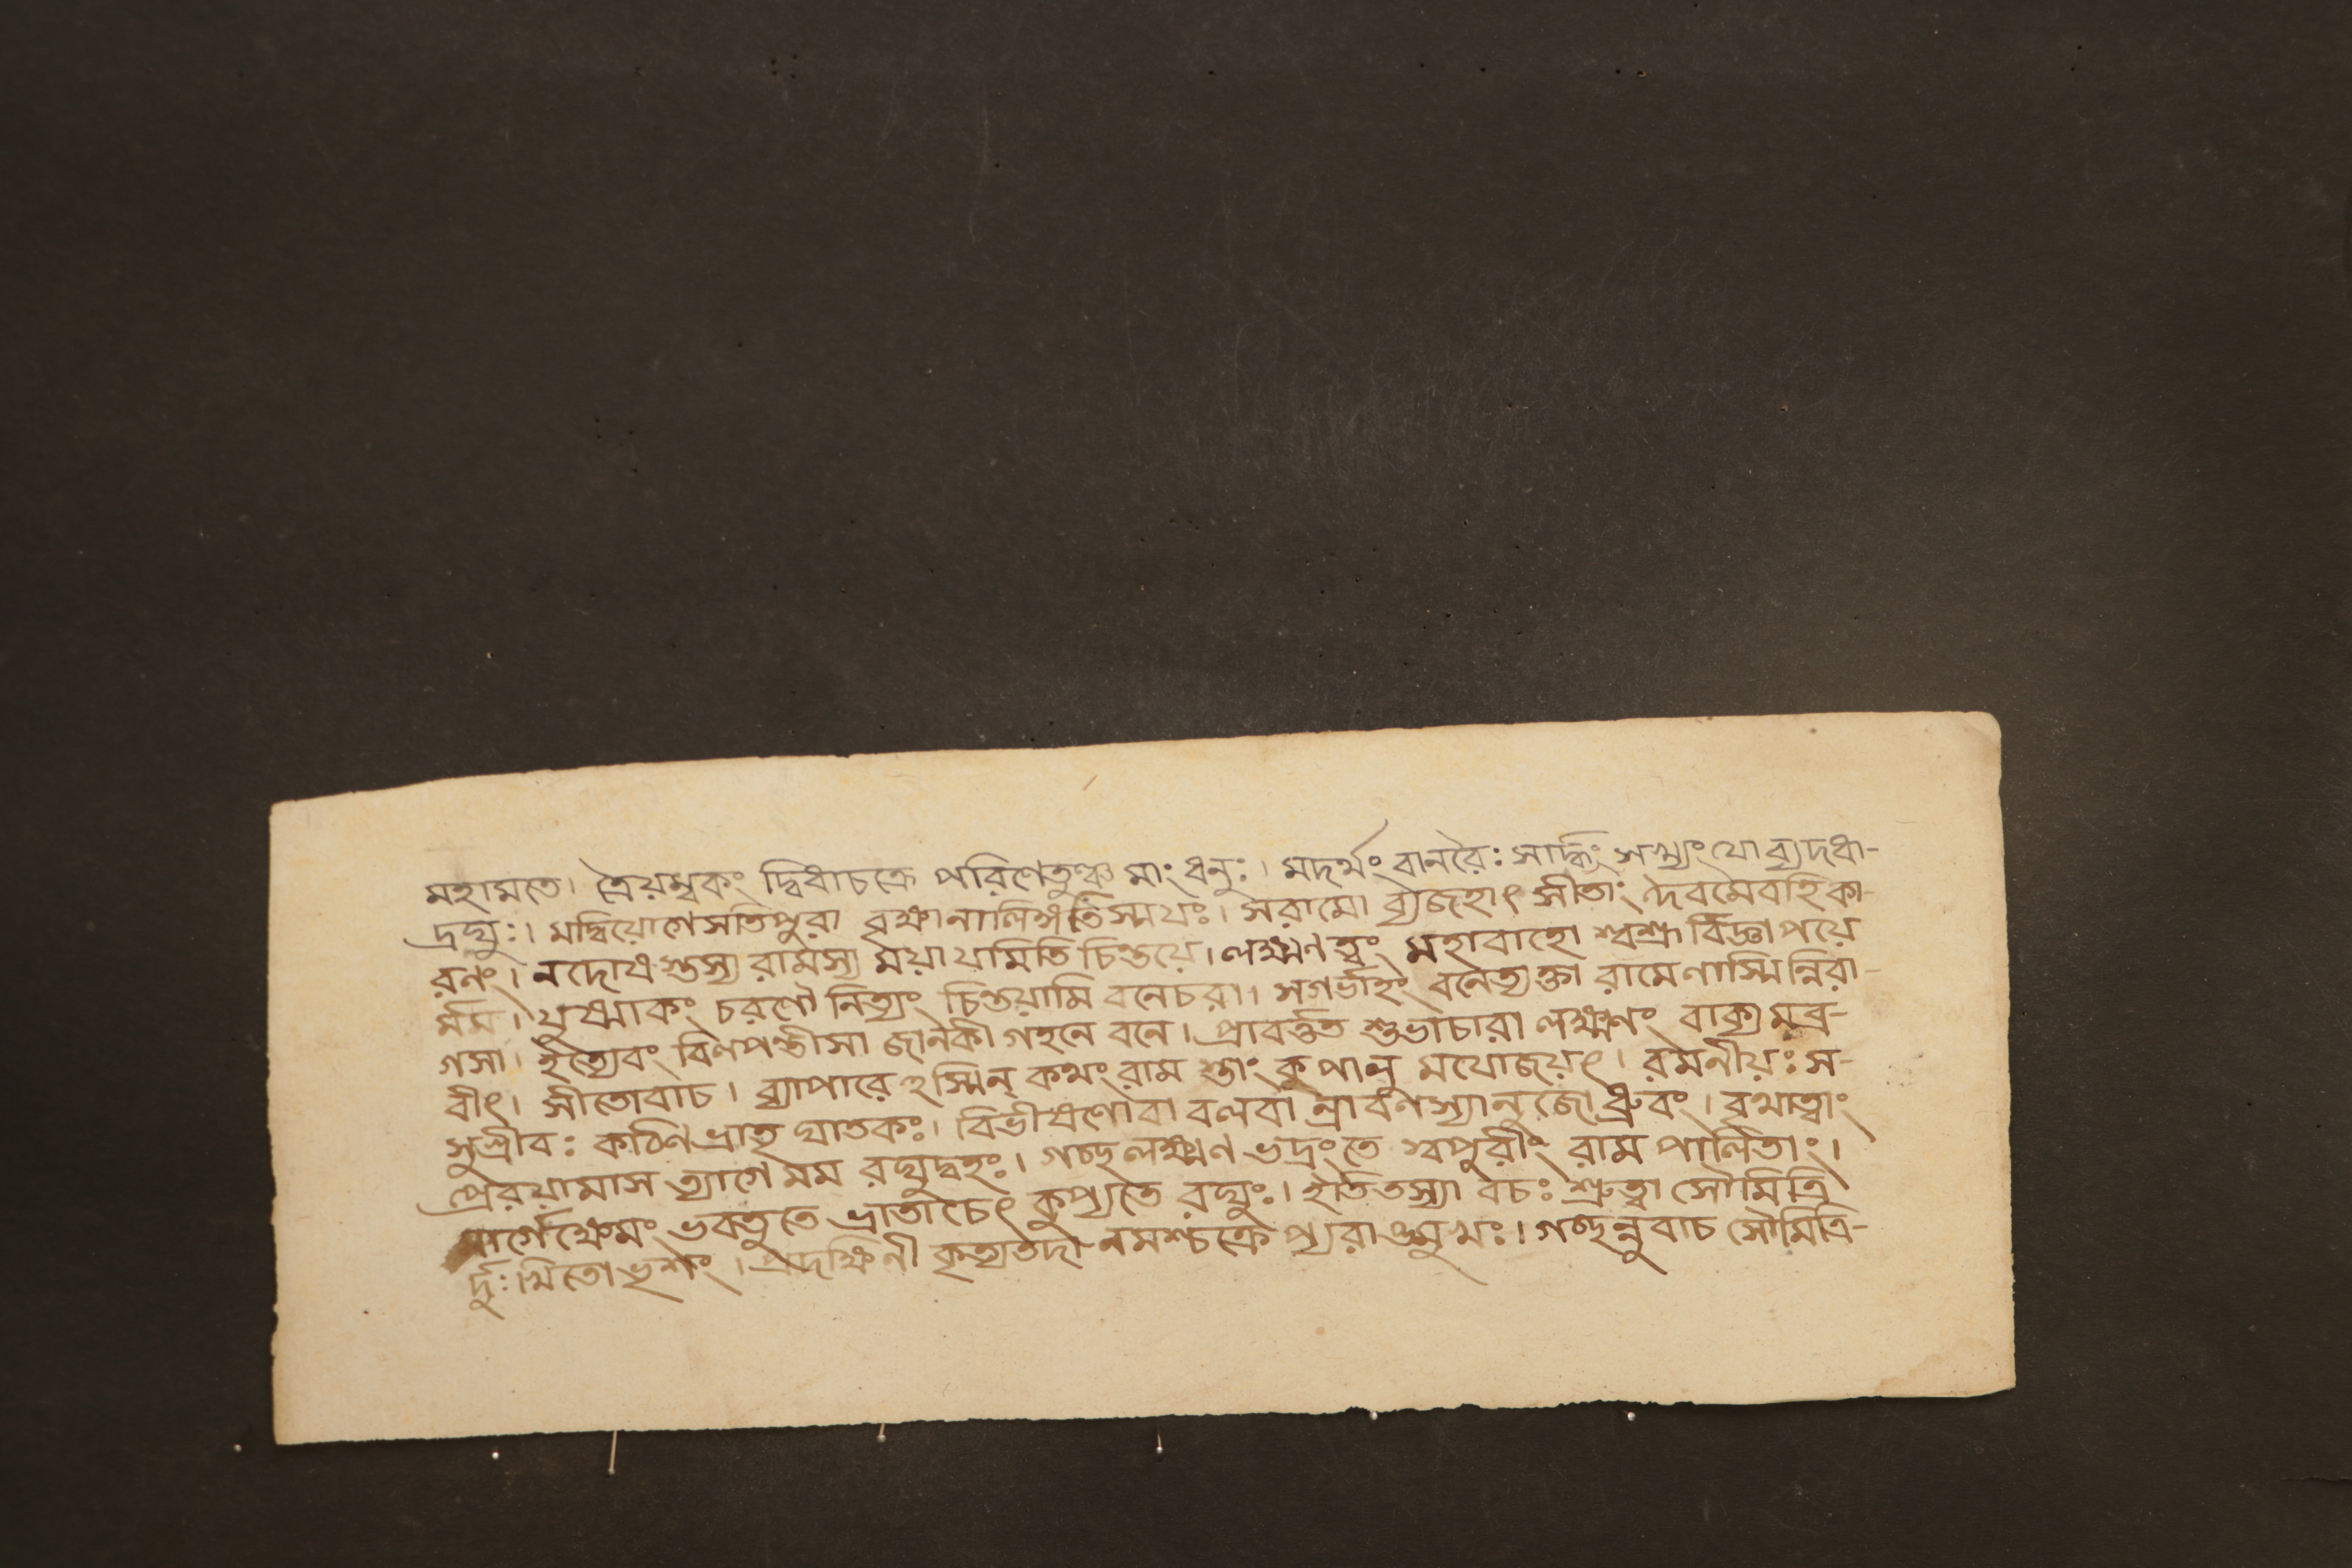 মহামতে। ত্রৈয়ম্বকং দ্বিধাচক্রে পরিণেতুঞ্চ মাং ধনুঃ। মদর্থং বানরৈঃ সার্দ্ধং সখ্যং যো ব্যদধা-
দ্রঘুঃ। মদ্বিয়োগেসতিপুরা বৃক্ষানালিঙ্গতিস্ময়ঃ। সরামো ব্যজহাৎ সীতাং দৈবমেবহিকা-
রনং। নদোষস্তস্য রামস্য ময়া যমিতি চিন্তয়ে। লক্ষ্মণ ত্বং মহাবাহো শ্বশ্রূ র্বিজ্ঞাপয়ে
র্মম। যুষ্মাকং চরণৌ নিত্যং চিন্তয়ামি বনেচরা। সগর্ভাহং বনেত্যক্তা রামেণাস্মিন্নিরা-
গসা। ইত্যেবং বিলপন্তীসা জানকী গহনে বনে। প্রাবর্ত্তত শুভাচারা লক্ষ্মণং বাক্য মব্র-
বীৎ। সীতোবাচ। ব্যাপারে হস্মিন্ কথং রাম স্ত্বাং কৃপালু মযোজয়ৎ। রমনীয়ঃ স-
সুগ্রীবঃ কঠিণ ভ্রাতৃ ঘাতকঃ। বিভীষণোবা বলবা ন্রাবণস্যানুজো ধ্রুবং। বৃথাত্বাং
প্রেরয়ামাস ত্যাগে মম রঘুদ্বহঃ। গচ্ছ লক্ষ্মণ ভদ্রংতে স্বপুরীং রাম পালিতাং।
মার্গেক্ষেমং ভবতুতে ভ্রাতাচেৎ কুপ্যতে রঘুঃ। ইতিতস্যা বচঃ শ্রুত্বা সৌমিত্রি
র্দুঃখিতো ভৃশং। প্রদক্ষিনী কৃত্যতদা নমশ্চক্রে প্যরাঙ্মুখঃ। গচ্ছন্নুবাচ সৌমিত্রি-